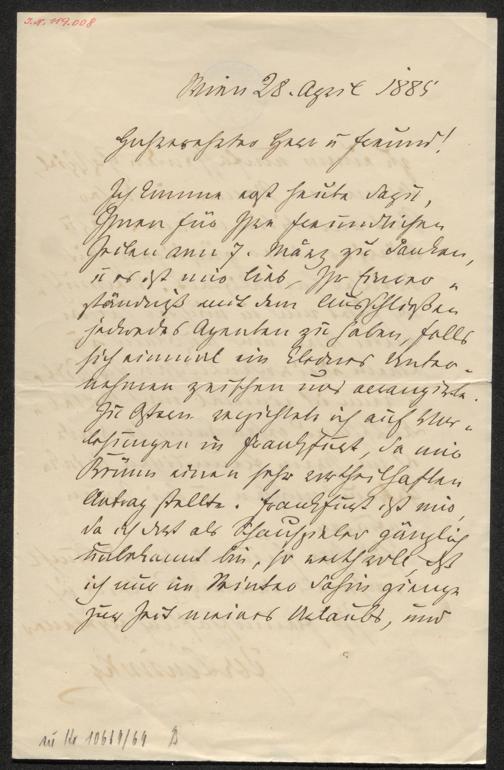 J.N. 119.008
Wien 28. April 1885
Hochverehrter Herr u Freund!
Ich komme erst heute dazu,
Ihnen für Ihre freundlichen
Zeilen vom 7. März zu danken,
u es ist mir lieb, Ihr Einver-
ständniß mit dem Ausschließen
jedwedes Agenten zu haben, falls
sich einmal ein Unter-
nehmen zwischen uns arrangirte.
Zu Ostern verzichtete ich auf Vor-
lesungen in Frankfurt, da mir
Brünn einen sehr vortheilhaften
Antrag stellte. Frankfurt ist mir,
da ich dort als Schauspieler gänzlich
unbekannt bin, so werthvoll, daß
ich nur im Winter dahin gienge
zur Zeit meines Urlaubs, und
10689/69